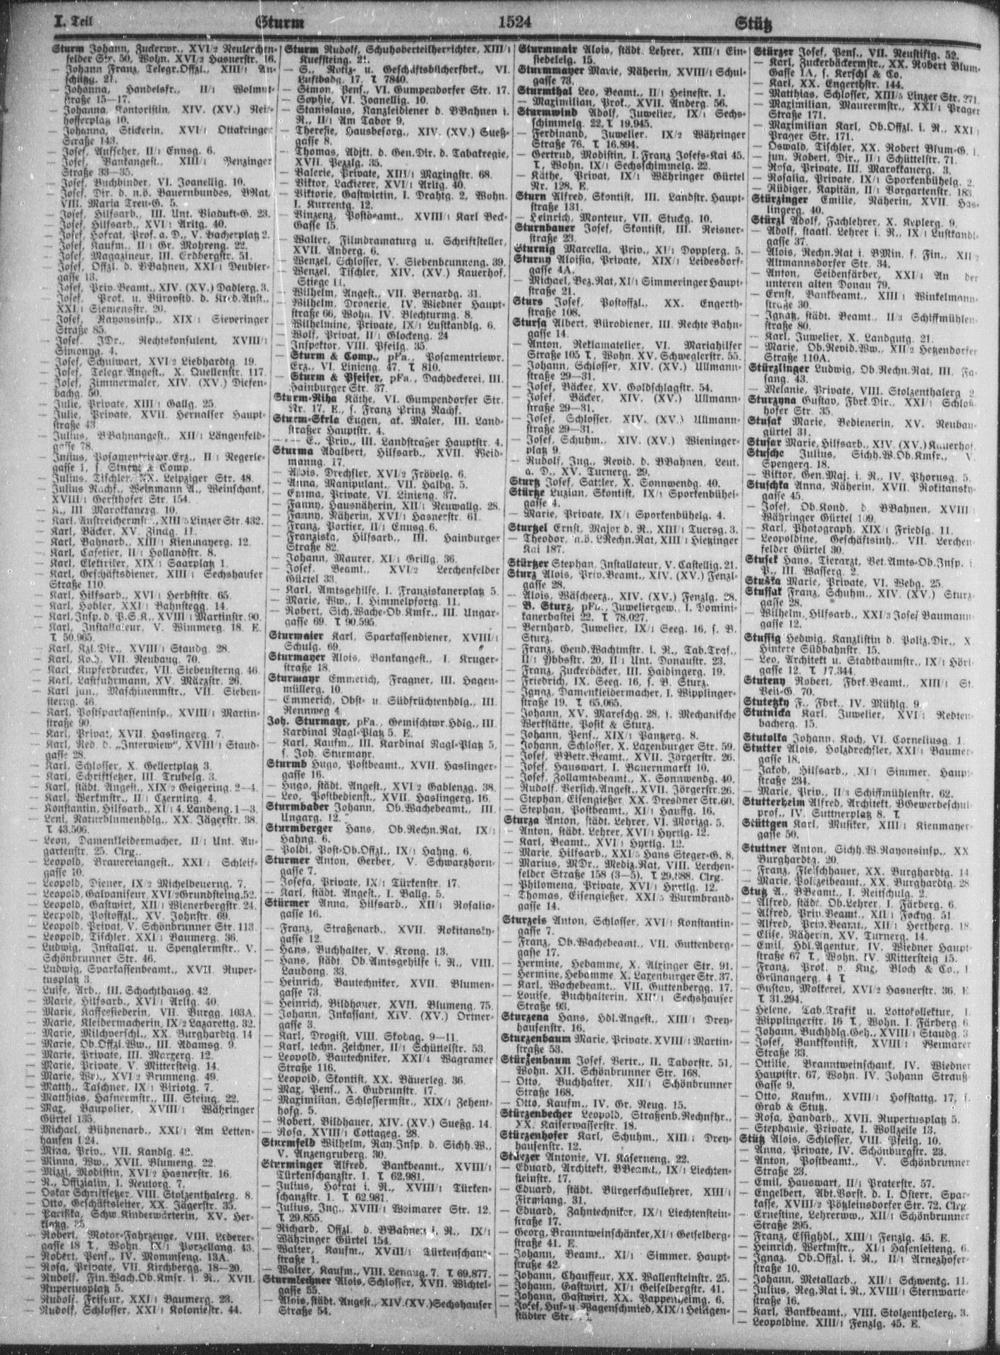 I. Teil
Sturm
1524
Stütz
Sturm Johann, Zuckerw., XVI/2 Reulerchen-
felder Str. 50, Wohn. XVI/2 Hasnerstr. 16.
— Johann Franz, Telegr.Offzl., XIII/1 An-
schützg. 21.
— Johanna, Handelsfr., II/1 Wolmut-
straße 15—17.
— Johanna, Kontoristin, XIV. (XV.) Rei-
hofferplatz 10.
— Johanna, Stickerin, XVI/1 Ottakringer
Straße 143.
— Josef, Aufseher, II/1 Ennsg. 6.
— Josef, Bankangest., XIII/1 Penzinger
Straße 33—35.
— Josef, Buchbinder, VI. Joanellig. 10.
— Josef, Dir. d. n.ö. Bauernbundes, BRat,
VIII. Maria Treu-G. 5.
— Josef, Hilfsarb., III. Unt. Viadukt-G. 23.
— Josef, Hilfsarb., XVI/1 Arltg. 40.
— Josef, Hofrat, Prof. a. D., V. Bacherplatz 2.
— Josef, Kaufm., II/1 Gr. Mohreng. 22.
— Josef, Magazineur, III. Erdbergstr. 51.
— Josef, Offzl. d. BBahnen, XXI/1 Deubler-
gasse 13.
— Josef, Priv.Beamt., XIV. (XV.) Dadlerg. 3.
— Josef, Prof. u. Bürovstd. d. Kred.Anst.,
XXI/1 Siemensstr. 20.
— Josef, Rayonsinsp., XIX/1 Sieveringer
Straße 85.
— Josef, JDr., Rechtskonsulent, XVIII/1
Simonyg. 4.
— Josef, Schulwart, XVI/2 Liebhardtg. 19.
— Josef, Telegr.Angest., X. Quellenstr. 117.
— Josef, Zimmermaler, XIV. (XV.) Diefen-
bachg. 50.
— Julie, Private, XIII/1 Gallg. 25.
— Julie, Private, XVII. Hernalser Haupt-
straße 43.
— Julius, BBahnangest., XII/1 Längenfeld-
gasse 78.
— Julius, Posamentierw.Erz., II/1 Negerle-
gasse 1, s. Sturm & Comp.
— Julius, Tischler, XX. Leipziger Str. 48.
— Julius Nachf., Weinmann A., Weinschank,
XVIII/1 Gersthofer Str. 154.
— K., III. Marokkanerg. 10.
— Karl, Anstreichermstr., XIII/5 Linzer Str. 432.
— Karl, Bäcker, XV. Zinckg. 11.
— Karl, Bahnarb., XIII/1 Kienmayerg. 12.
— Karl, Cafetier, II/1 Hollandstr. 8.
— Karl, Elektriker, IX/1 Saarplatz 1.
— Karl, Geschäftsdiener, XIII/1 Sechshauser
Straße 110.
— Karl, Hilfsarb., XVI/1 Herbststr. 65.
— Karl, Hobler, XXI/1 Bahnstegg. 14.
— Karl, Insp. d. P.S.K., XVIII/1 Martinstr. 90.
— Karl, Installateur, V. Wimmerg. 18. E.
T 50.965.
— Karl, Kzl.Dir., XVIII/1 Staudg. 28.
— Karl, Koch, VII. Neubaug. 70.
— Karl, Kupferdrucker, VII. Siebensterng. 46.
— Karl, Lastfuhrmann, XV. Märzstr. 26.
— Karl jun., Maschinenmstr., VII. Sieben-
sterng. 46.
— Karl, Postsparkasseninsp., XVIII/1 Martin-
straße 90.
— Karl, Privat, XVII. Haslingerg. 7.
— Karl, Red. d. „Interview", XVIII/1 Staud-
gasse 28.
— Karl, Schlosser, X. Gellertplatz 3.
— Karl, Schriftsetzer, III. Trubelg. 3.
— Karl, städt. Angest., XIX/2 Geigering. 2—4.
— Karl, Werkmstr., II/1 Czerning. 4.
— Konstantin, Hilfsarb., XI/1 4. Landeng. 1—3.
— Leni, Naturblumenhdlg., XX. Jägerstr. 38.
T 43.506.
— Leon, Damenkleidermacher, II/1 Unt. Au-
gartenstr. 25. Clrg.
— Leopold, Brauereiangest., XXI/1 Schleif-
gasse 10.
— Leopold, Diener, IX/2 Michelbeuerng. 7.
— Leopold, Galvaniseur, XVI/2 Grundsteing. 52.
— Leopold, Gastwirt, XII/1 Wienerbergstr. 24.
— Leopold, Postoffzl., XV. Johnstr. 69.
— Leopold, Privat, V. Schönbrunner Str. 113.
— Leopold, Tischler, XXI/1 Baumerg. 36.
— Ludwig, Installat. u. Spenglermstr., V.
Schönbrunner Str. 46.
— Ludwig, Sparkassenbeamt., XVII. Ruper-
tusplatz 3.
— Luise, Arb., III. Schlachthausg. 42.
— Marie, Hilfsarb., XVI/1 Arltg. 40.
— Marie, Kaffeesiederin, VII. Burgg. 103A.
— Marie, Kleidermacherin, IX/2 Lazarettg. 32.
— Marie, Milchverschl., XX. Burghardtg. 14
— Marie, Ob.Offzl.Ww., III. Adamsg. 9.
— Marie, Private, III. Marxerg. 12.
— Marie, Private, V. Mittersteig 14.
— Marie, Ww., XVI/2 Brunneng. 49.
— Matth., Taschner, IX/1 Viriotg. 7.
— Matthias, Hafnermstr., III. Steing. 22.
— Max, Baupolier, XVIII/1 Währinger
Gürtel 135.
— Michael, Bühnenarb., XXI/1 Am Letten-
haufen 124.
— Mina, Priv., VII. Kandlg. 42.
— Minna, Ww., XVII. Blumeng. 22.
— Mizzi, Modistin, XVI/1 Hasnerstr. 16.
— N., Offizialin, I. Neutorg. 7.
— Oskar, Schriftsetzer, VIII. Stolzenthalerg. 8.
— Otto, Geschäftsleiter, XX. Jägerstr. 35.
— Pariska, Schw.Kinderwärterin, XV. Her-
klotzg. 25.
— Robert, Motor-Fahrzeuge, VIII. Lederer-
gasse 18 T, Wohn. IX/1 Porzellang. 43.
— Robert, Pens., IV. Mommseng. 13A.
— Rosa, Private, VII. Kirchbergg. 18—20.
— Rudolf, Fin.Wach.Ob.Kmsr. i. R., XVII.
Rupertusplatz 5.
— Rudolf, Friseur, XXI/1 Baumerg. 23.
— Rudolf, Schlosser, XXI/1 Koloniestr. 44.
Sturm Rudolf, Schuhoberteilherrichter, XIII/1
Kuefsteing. 21.
— S., Notiz- u. Geschäftsbücherfbrk., VI.
Luftbadg. 17. T 7840.
— Simon, Pens., VI. Gumpendorfer Str. 17.
— Sophie, VI. Joanellig. 10.
— Stanislaus, Kanzleidiener d. BBahnen i.
R., II/1 Am Tabor 9.
— Therese, Hausbesorg., XIV. (XV.) Sueß-
gasse 8.
— Thomas, Adjkt. d. Gen.Dir. d. Tabakregie,
XVII. Pezzlg. 35.
— Valerie, Private, XIII/1 Maxingstr. 68.
— Viktor, Lackierer, XVI/1 Arltg. 40.
— Viktorie, Gastwirtin, I. Drahtg. 2, Wohn.
I. Kurrentg. 12.
— Vinzenz, Postbeamt., XVIII/1 Karl Beck-
Gasse 15.
— Walter, Filmdramaturg u. Schriftsteller,
XVII. Anderg. 6.
— Wenzel, Schlosser, V. Siebenbrunneng. 39.
— Wenzel, Tischler, XIV. (XV.) Kauerhof,
Stiege 11.
— Wilhelm, Angest., VII. Bernardg. 31.
— Wilhelm, Drogerie, IV. Wiedner Haupt-
straße 66, Wohn. IV. Blechturmg. 8.
— Wilhelmine, Private, IX/1 Lustkandlg. 6.
— Wolf, Privat, II/1 Glockeng. 24
— Inspektor, VIII. Pfeilg. 35.
— Sturm & Comp., pFa., Posamentrierw.
Erz., VI. Linieng. 47. T 810.
— Sturm & Pfeifer, pFa., Dachdeckerei, III.
Hainburger Str. 37.
Sturm-Riha Käthe, VI. Gumpendorfer Str.
Nr. 17, E., s. Franz Prinz Nachf.
Sturm-Skrla Eugen, ak. Maler, III. Land-
straßer Hauptstr. 4.
— E., Priv., III. Landstraßer Hauptstr. 4.
Sturma Adalbert, Hilfsarb., XVII. Weid-
manng. 17.
— Alois, Drechsler, XVI/2 Fröbelg. 6.
— Anna, Manipulant., VII. Halbg. 5.
— Emma, Private, VI. Linieng. 37.
— Fanny, Hausnäherin, XII/1 Neuwallg. 28.
— Fanny, Näherin, XVI/1 Hasnerstr. 61.
— Franz, Portier, II/1 Ennsg. 6.
— Franziska, Hilfsarb., III. Hainburger
Straße 82.
— Johann, Maurer, XI/1 Grillg. 36.
— Josef, Beamt., XVI/2 Lerchenfelder
Gürtel 33.
— Karl, Amtsgehilfe, I. Franziskanerplatz 5.
— Marie, Ww., I. Himmelpfortg. 11.
— Robert, Sich.Wache-Ob.Kmsr., III. Ungar-
gasse 69. T 90.595.
Sturmaier Karl, Sparkassendiener, XVIII/1
Schulg. 69.
Sturmayer Alois, Bankangest., I. Kruger-
straße 18.
Sturmayr Emmerich, Fragner, III. Hagen-
müllerg. 10.
— Emmerich, Obst- u. Südfrüchtenhdlg., III.
Rennweg 4.
Joh. Sturmayr, pFa., Gemischtwr.Hdlg., III.
Kardinal Nagl-Platz 5. E.
— Karl, Kaufm., III. Kardinal Nagl-Platz 5,
s. Joh. Sturmayr.
Sturmb Hugo, Postbeamt., XVII. Haslinger-
gasse 16.
— Hugo, städt. Angest., XVI/2 Gablenzg. 38.
— Leo, Postbedienst., XVII. Haslingerg. 16.
Sturmbaber Johann, Ob.Wachebeamt., III.
Ungarg. 12.
Sturmberger Hans, Ob.Rechn.Rat, IX/1
Hahng. 6.
— Poldi, Post-Ob.Offzl., IX/1 Hahng. 6.
Sturmer Anton, Gerber, V. Schwarzhorn-
gasse 7.
— Josefa, Private, IX/1 Türkenstr. 17.
— Karl, städt. Angest., I. Ballg. 5.
Stürmer Anna, Hilfsarb., XII/1 Rosalia-
gasse 16.
— Franz, Straßenarb., XVII. Rokitansky-
gasse 12.
— Hans, Buchhalter, V. Krong. 13.
— Hans, städt. Ob.Amtsgehilfe i. R., VIII.
Laudong. 33.
— Heinrich, Bautechniker, XVII. Blumen-
gasse 73.
— Heinrich, Bildhauer, XVII. Blumeng. 75.
— Johann, Inkassant, XIV. (XV.) Ortner-
gasse 3.
— Karl, Drogist, VIII. Skodag. 9—11.
— Karl, techn. Zeichner, II/1 Schüttelstr. 53.
— Leopold, Bautechniker, XXI/4 Wagramer
Straße 116.
— Leopold, Skontist, XX. Bäuerleg. 36.
— Max, Pens., X. Gudrunstr. 17.
— Maximilian, Schlossermstr., XIX/1 Zehent-
hofg. 5.
— Robert, Bildhauer, XIV. (XV.) Sueßg. 14.
— Rosa, XVIII/1 Cottageg. 28.
Sturmfeld Wilhelm, Ray.Insp. d. Sichh.W.,
V. Anzengruberg. 30.
Sturminger Alfred, Bankbeamt., XVIII/1
Türkenschanzstr. 1. T 62.981.
— Julius, Hofrat i. R., XVIII/1 Türken-
schanzstr. 1. T 62.981.
— Julius, Ing., XVIII/1 Weimarer Str. 12.
T 29.855.
— Richard, Offzl. d. BBahnen i. R., IX/1
Währinger Gürtel 154.
— Walter, Kaufm., XVIII/1 Türkenschanz-
straße 1.
— Walter, Kaufm., VIII. Lenaug. 7. T 69.877.
Sturmlechner Alois, Schlosser, XVII. Wichtel-
gasse 55.
— Alois, städt. Angest., XIV. (XV.) Sechshauser
Straße 54.
Sturmmair Alois, städt. Lehrer, XIII/1 Ein-
siedeleig. 15.
Sturmmayer Marie, Näherin, XVIII/1 Schul-
gasse 73.
Sturmthal Leo, Beamt., II/1 Heinestr. 1.
— Maximilian, Prof., XVII. Anderg. 56.
Sturmwind Adolf, Juwelier, IX/1 Sechs-
schimmelg. 22. T 19.945.
— Ferdinand, Juwelier, IX/2 Währinger
Straße 76. T 16.894.
— Gertrud, Modistin, I. Franz Josefs-Kai 45.
T, Wohn. IX/1 Sechsschimmelg. 22.
— Käthe, Privat, IX/1 Währinger Gürtel
Nr. 128. E.
Sturn Alfred, Skontist, III. Landstr. Haupt-
straße 131.
— Heinrich, Monteur, VII. Stuckg. 10.
Sturnbauer Josef, Skontist, III. Reisner-
straße 23.
Sturnig Marcella, Priv., XI/1 Dopplerg. 5.
Sturny Aloisia, Private, IX/1 Leibesdorf-
gasse 4A.
— Michael, Bez.Rat, XI/1 Simmeringer Haupt-
straße 21.
Sturs Josef, Postoffzl., XX. Engerth-
straße 108.
Sturfa Albert, Bürodiener, III. Rechte Bahn-
gasse 14.
— Anton, Reklamatelier, VI. Mariahilfer
Straße 105 T, Wohn. XV. Schweglerstr. 55.
— Johann, Schlosser, XIV. (XV.) Ullmann-
straße 29—31.
— Josef, Bäcker, XV. Goldschlagstr. 54.
— Josef, Bäcker, XIV. (XV.) Ullmann-
straße 29—31.
— Josef, Schlosser, XIV. (XV.) Ullmann-
straße 29—31.
— Josef, Schuhm., XIV. (XV.) Wieninger-
platz 9.
— Rudolf, Ing., Revid. d. BBahnen, Leut.
a. D., XV. Turnerg. 29.
Sturz Josef, Sattler, X. Sonnwendg. 40.
Stürze Luzian, Skontist, IX/1 Sporkenbühel-
gasse 4.
— Marie, Private, IX/1 Sporkenbühelg. 4.
Sturzel Ernst, Major d. R., XIII/1 Tuersg. 3.
— Theodor, n.ö. LRechn.Rat, XIII/1 Hietzinger
Kai 187.
Stürtzer Stephan, Installateur, V. Castellig. 21.
Sturz Alois, Priv.Beamt., XIV. (XV.) Fenzl-
gasse 28.
— Alois, Wäscheerz., XIV. (XV.) Fenzlg. 28.
— B. Sturz, pFa., Juweliergew., I. Domini-
kanerbastei 22. T 78.027.
— Bernhard, Juwelier, IX/1 Seeg. 16, s. B.
Sturz.
— Franz, Gend.Wachtmstr. i. R., Tab.Traf.,
II/1 Ybbsstr. 20, II/1 Unt. Donaustr. 23.
— Franz, Zuckerbäcker, III. Haidingerg. 19.
— Friedrich, IX. Seeg. 16, s. B. Sturz.
— Ignaz, Damenkleidermacher, I. Wipplinger-
straße 19. T 65.065.
— Johann, XV. Mareschg. 28, s. Mechanische
Werkstätte, Posit & Sturz.
— Johann, Pens., XIX/1 Pantzerg. 8.
— Johann, Schlosser, X. Laxenburger Str. 59.
— Josef, BBetr.Beamt., XVII. Jörgerstr. 26.
— Josef, Hauswart, I. Bauernmarkt 10.
— Josef, Zollamtsbeamt., X. Sonnwendg. 40.
— Rudolf, Versich.Angest., XVII. Jörgerstr. 26.
— Stephan, Eisengießer, XX. Dresdner Str. 60.
— Stephan, Postbeamt., XI/1 Hauffg. 16.
Sturza Anton, städt. Lehrer, VI. Morizg. 5.
— Anton, städt. Lehrer, XVI/1 Hyrtlg. 12.
— Karl, Beamt., XVI/1 Hyrtlg. 12.
— Marie, Hilfsarb., XXI/5 Hans Steger-G. 8.
— Marius, MDr., Mediz.Rat, VIII. Lerchen-
felder Straße 158 (3—5). T 29.688. Clrg.
— Philomena, Private, XVI/1 Hyrtlg. 12.
— Thomas, Eisengießer, XXI/5 Wurmbrand-
gasse 14.
Sturzeis Anton, Schlosser, XVI/1 Konstantin-
gasse 7.
— Franz, Ob.Wachebeamt., VII. Guttenberg-
gasse 17.
— Hermine, Hebamme, X. Alxinger Str. 91.
— Hermine, Hebamme, X. Laxenburger Str. 37.
— Karl, Wachebeamt., VII. Guttenbergg. 17.
— Louise, Buchhalterin, XIII/1 Sechshauser
Straße 93.
Sturzena Hans, Hdl.Angest., XIII/1 Drey-
hausenstr. 16.
Sturzenbaum Marie, Private, XVIII/1 Martin-
straße 53.
Stürzenbaum Josef, Vertr., II. Taborstr. 51,
Wohn. XII. Schönbrunner Str. 168.
— Otto, Buchhalter, XII/1 Schönbrunner
Straße 168.
— Otto, Kaufm., IV. Gr. Neug. 15.
Stürzenbecher Leopold, Straßenb.Rechnsfhr.,
XX. Kaiserwasserstr. 18.
Stürzenhofer Karl, Schuhm., XIII/1 Drey-
hausenstr. 12.
Stürzer Antonie, VI. Kaserneng. 22.
— Eduard, Architekt, BBeamt., IX/1 Liechten-
steinstr. 17.
— Eduard, städt. Bürgerschullehrer, XIII/1
Firmiang. 31.
— Eduard, Zahntechniker, IX/1 Liechtenstein-
straße 17.
— Georg, Branntweinschank, XI/1 Geiselberg-
straße 41. E.
— Johann, Beamt., XI/1 Simmer. Haupt-
straße 42.
— Johann, Chauffeur, XX. Wallensteinstr. 25.
— Johann, Gastwirt, XI/1 Geiselbergstr. 41.
— Johann, Gastwirt, XX. Pappenheimg. 6.
— Josef, Huf- u. Wagenschmied, XIX/1 Heiligen-
städter Str.
Stürzer Josef, Pens., VII. Neustiftg. 52.
— Karl, Zuckerbäckermstr., XX. Robert Blum-
Gasse 1A, s. Kerschl & Co.
— Karl, XX. Engerthstr. 144.
— Matthias, Schlosser, XIII/5 Linzer Str. 271.
— Maximilian, Maurermstr., XXI/1 Prager
Straße 171.
— Maximilian Karl, Ob.Offzl. i. R., XXI/1
Prager Str. 171.
— Oswald, Tischler, XX. Robert Blum-G. 1
— jun. Robert, Dir., II/1 Schüttelstr. 71.
— Rosa, Private, III. Marokkanerg. 3.
— Rosalia, Private, IX/1 Sporkenbühelg. 2
— Rüdiger, Kapitän, II/1 Vorgartenstr. 183.
Stürzinger Emilie, Näherin, XVII. Has-
lingerg. 40.
Stürzl Adolf, Fachlehrer, X. Keplerg. 9.
— Adolf, staatl. Lehrer i. R., IX/1 Lustkandl-
gasse 37.
— Alois, Rechn.Rat i. BMin. f. Fin., XII/2
Altmannsdorfer Str. 34.
— Anton, Seidenfärber, XXI/1 An der
unteren alten Donau 79.
— Ernst, Bankbeamt., XIII/1 Winkelmann-
straße 30.
— Ignaz, städt. Beamt., II/2 Schiffmühlen-
straße 80.
— Karl, Juwelier, X. Landgutg. 21.
— Marie, Ob.Revid.Ww., XII/2 Hetzendorfer
Straße 110A.
Stürzlinger Ludwig, Ob.Rechn.Rat, III. Fa-
sang. 43.
— Melanie, Private, VIII. Stolzenthalerg. 2
Sturzyna Gustav, Fbrk.Dir., XXI/1 Schloß-
hofer Str. 35.
Stusak Marie, Bedienerin, XV. Neubau-
gürtel 31.
Stusar Marie, Hilfsarb., XIV. (XV.) Kauerhof.
Stusche Julius, Sichh.W.Ob.Kmsr., V.
Spengerg. 18.
— Viktor, Gen.Maj. i. R., IV. Phorusg. 5.
Stuschka Anna, Näherin, XVII. Rokitansky-
gasse 45.
— Josef, Ob.Kond. d. BBahnen, XVIII/1
Währinger Gürtel 109.
— Karl, Photograph, XIX/1 Friedlg. 11.
— Leopoldine, Geschftsinh., VII. Lerchen-
felder Gürtel 30.
Stusek Hans, Tierarzt, Vet.Amts-Ob.Insp. i.
P., III. Wasserg. 2.
Stuska Marie, Private, VI. Webg. 25.
Stussak Franz, Schuhm., XIV. (XV.) Sturz-
gasse 28.
— Wilhelm, Hilfsarb., XXI/2 Josef Baumann-
gasse 12.
Stussig Hedwig, Kanzlistin d. Poliz.Dir., X.
Hintere Südbahnstr. 15.
— Leo, Architekt u. Stadtbaumstr., IX/1 Hörl-
gasse 12. T 17.344.
Stuteny Robert, Fbrk.Beamt., XIII/1 St.
Veit-G. 70.
Stutetzky F., Fbrk., IV. Mühlg. 9.
Stutnicka Karl, Juwelier, XVI/1 Redten-
bacherg. 15.
Stutolka Johann, Koch, VI. Corneliusg. 1
Stutter Alois, Holzdrechsler, XXI/1 Baumer-
gasse 18.
— Jakob, Hilfsarb., XI/1 Simmer. Haupt-
straße 234.
— Marie, Priv., II/1 Schiffmühlenstr. 62.
Stutterheim Alfred, Architekt, BGewerbeschul-
prof., IV. Suttnerplatz 8. T
Stüttgen Karl, Musiker, XIII/1 Kienmayer-
gasse 50.
Stuttner Anton, Sichh.W.Rayonsinsp., XX.
Burghardtg. 20.
— Franz, Fleischhauer, XX. Burghardtg. 14
— Marie, Polizeibeamt., XX. Burghardtg. 28
Stutz A., BBeamt., I. Reitschulg. 2.
— Alfred, städt. Ob.Lehrer, I. Färberg. 6.
— Alfred, Priv.Beamt., XII/1 Fockyg. 51.
— Alfred, Priv.Beamt., XII/1 Hertherg. 18
— Elise, Näherin, XV. Turnerg. 14.
— Emil, Hdl.Agentur, IV. Wiedner Haupt-
straße 67 T, Wohn. IV. Mittersteig 15.
— Franz, Prok. v. Knz, Bloch & Co., I.
Grünangerg. 4. T
— Gustav, Molkerei, XVI/2 Hasnerstr. 36. E.
T 31.294.
— Helene, Tab.Trafik u. Lottokollektur, I.
Wipplingerstr. 16 T, Wohn. I. Färberg. 6
— Johann, Buchhdlg.Geh., XVIII/1 Staudg. 3
— Josef, Bankskontist, XVIII/1 Weimarer
Straße 33.
— Ottilie, Branntweinschank, IV. Wiedner
Hauptstr. 67, Wohn. IV. Johann Strauß-
Gasse 9.
— Otto, Kaufm., XVIII/1 Hofstattg. 17, s.
Grab & Stutz.
— Rosa, Handarb., XVII. Rupertusplatz 5.
— Stephanie, Private, I. Wollzeile 13.
Stütz Alois, Schlosser, VIII. Pfeilg. 10.
— Anna, Private, IV. Schönburgstr. 25.
— Anton, Postbeamt., V. Schönbrunner
Straße 23.
— Emil, Hauswart, II/1 Praterstr. 57.
— Engelbert, Abt.Vorst. d. I. Österr. Spar-
kasse, XVIII/2 Pötzleinsdorfer Str. 72. Clrg.
— Ernestine, Lehrersww., XII/1 Schönbrunner
Straße 295.
— Franz, Essighdl., XIII/1 Fenzlg. 45. E.
— Heinrich, Werkmstr., XI/1 Hasenleiteng. 6.
— Ignaz, Ob.Offzl. i. R., II/1 Arnezhofer-
straße 10.
— Johann, Metallarb., XII/1 Schwenkg. 11.
— Julius, Reg.Rat i. R., XVIII/1 Sternwarte-
straße 16.
— Karl, Bankbeamt., VIII. Stolzenthalerg. 3.
— Leopoldine, XIII/1 Fenzlg. 45. E.